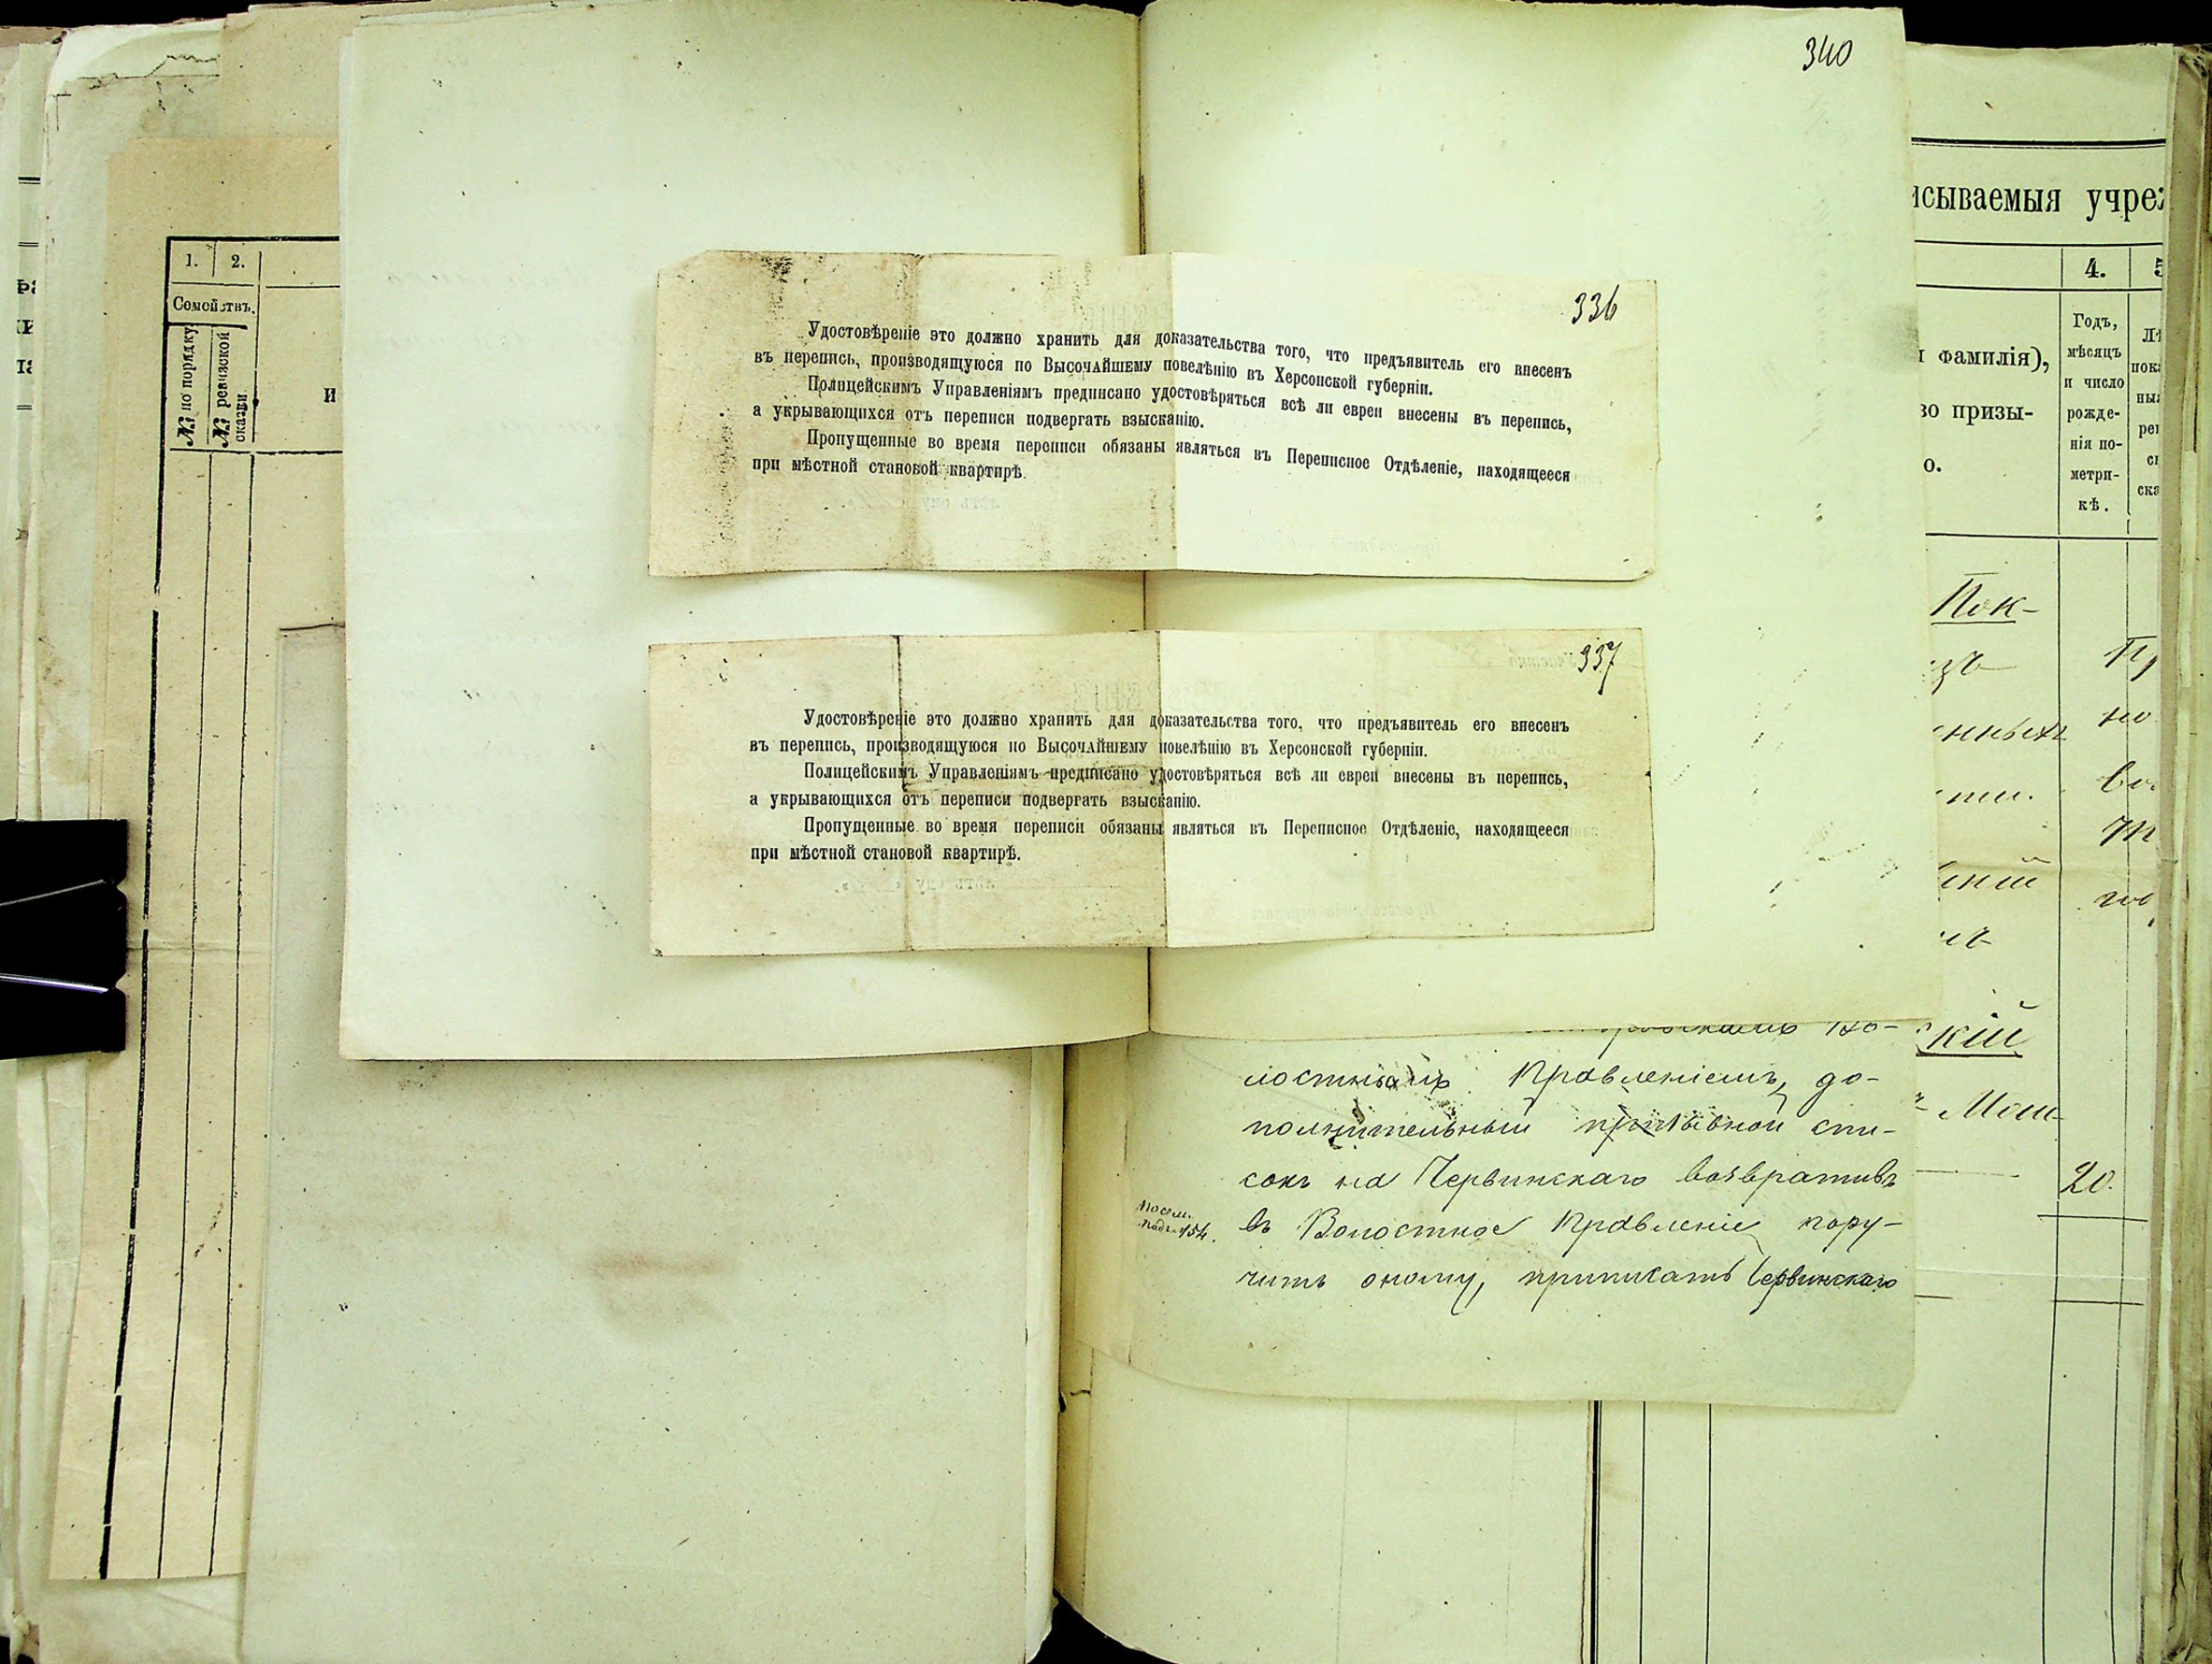 340
336
Удостовѣреніе это должно хранить для доказательства того, что предъявитель его внесенъ
въ перепись, производящуюся по Высочайшему повелѣнію въ Херсонской губерніи.
Полицейскимъ Управленіямъ предписано удостовѣряться всѣ ли евреи внесены въ перепись,
а укрывающихся отъ переписи подвергать взысканію.
Пропущенные во время переписи обязаны являться въ Переписное Отдѣленіе, находящееся
при мѣстной становой квартирѣ.
337
Удостовѣреніе это должно хранить для доказательства того, что предъявитель его внесенъ
въ перепись, производящуюся по Высочайшему повелѣнію въ Херсонской губерніи.
Полицейскимъ Управленіямъ предписано удостовѣряться всѣ ли евреи внесены въ перепись,
а укрывающихся отъ переписи подвергать взысканію.
Пропущенные во время переписи обязаны являться въ Переписное Отдѣленіе, находящееся
при мѣстной становой квартирѣ.
лостнымъ Правленіемъ, до-
полнительный призывной спи-
сокъ на Червинскаго возвративъ
въ Волостное Правленіе, пору-
чить оному, приписать Червинскаго
1. 2.
Семействъ.
№ по порядку
№ ревизской
сказки.
и
исываемыя учреж
4. 5
фамилія),
во призы-
о.
Годъ,
мѣсяцъ
и число
рожде-
нія по-
метри-
кѣ.
Пок-
кій
Мош-
20.